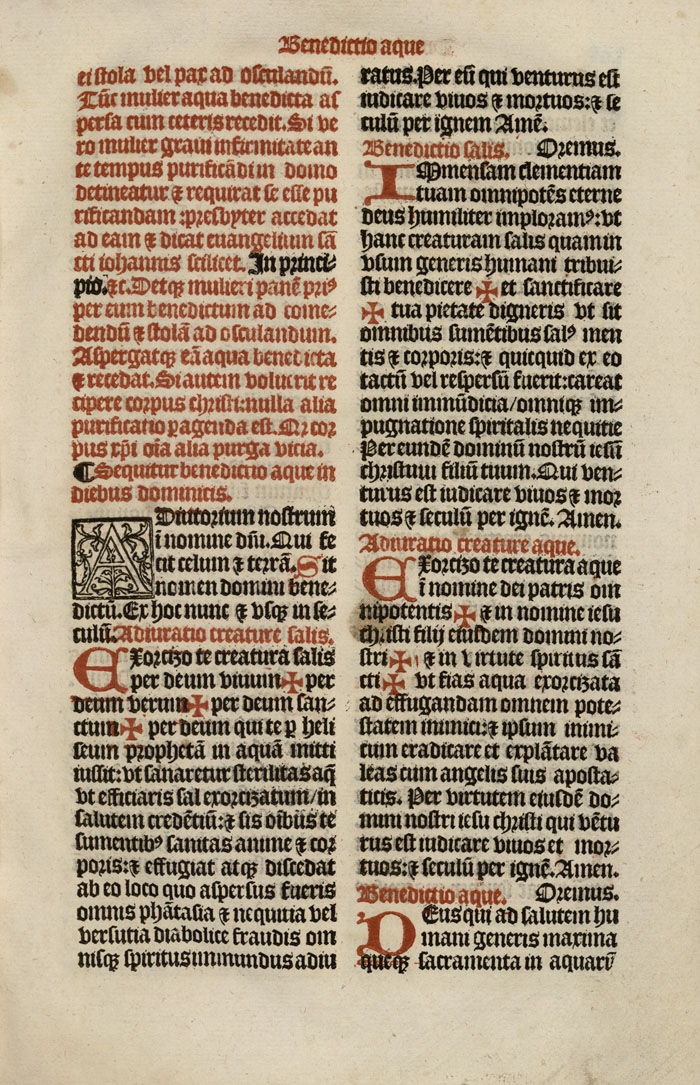 Benedictio aque
ei stola vel pax ad osculandū.
Tūc mulier aqua benedicta as
persa cum ceteris recedit. Si ve
ro mulier graui infirmitate an
te tempus purificādi in domo
detineatur & requirat se esse pu
rificandam : presbyter accedat
ad eam & dicat euangelium sā
cti iohannis scilicet. In princi⸗
pio. &c. Detqꝫ mulieri panē priꝰ
per eum benedictum ad come⸗
dendū & stolā ad osculandum.
Aspergatqꝫ eā aqua benedicta
& recedat. Si autem voluerit re
cipere corpus christi: nulla alia
purificatio ꝑagenda est. Nā cor
pus xp̄i oīa alia purga vicia.
¶ Sequitur benedictio aque in
diebus dominicis.
ADiutorium nostrum
ī nomine dn̄i. Qui fe
cit celum & terrā. Sit
nomen domini bene⸗
dictū. Ex hoc nunc & vsqꝫ in se⸗
culū. Adiuratio creature salis.
EXorcizo te creatura salis
per deum viuum ✠ per
deum verum ✠ per deum san⸗
ctum ✠ per deum qui te ꝑ heli
seum prophetā in aquā mitti
iussit: vt sanaretur sterilitas aq̄
vt efficiaris sal exorcizatum / in
salutem credētiū: & sis oībus te
sumentibꝰ sanitas anime & cor
poris: & effugiat atqꝫ discedat
ab eo loco quo aspersus fueris
omnis phātasia & nequitia vel
versutia diabolice fraudis om
nisqꝫ spiritus immundus adiu
ratus. Per eū qui venturus est
iudicare viuos & mortuos: & se
culū per ignem Amē.
Benedictio salis. Oremus.
IMmensam clementiam
tuam omnipotēs eterne
deus humiliter imploramꝰ: vt
hanc creaturam salis quam in
vsum generis humani tribui⸗
sti benedicere ✠ et sanctificare
✠ tua pietate digneris vt sit
omnibus sumētibus salꝰ men
tis & corporis: & quicquid ex eo
tactū vel respersū fuerit: careat
omni immūdicia / omniqꝫ im⸗
pugnatione spiritalis nequitie
Per eundē dominū nostrū iesū
christum filiū tuum. Qui ven⸗
turus est iudicare viuos & mor
tuos & seculū per ignē. Amen.
Adiuratio creature aque.
EXorcizo te creatura aque
ī nomine dei patris om
nipotentis ✠ & in nomine iesu
christi filij eiusdem domini no⸗
stri ✠ & in virtute spiritus sā
cti ✠ vt fias aqua exorcizata
ad effugandam omnem pote⸗
statem inimici: & ipsum inimi⸗
cum eradicare et explātare va
leas cum angelis suis aposta⸗
ticis. Per virtutem eiusdē do⸗
mini nostri iesu christi qui vētu
rus est iudicare viuos et mor⸗
tuos: & seculū per ignē. Amen.
Benedictio aque. Oremus.
DEus qui ad salutem hu
mani generis maxima
queqꝫ sacramenta in aquarū